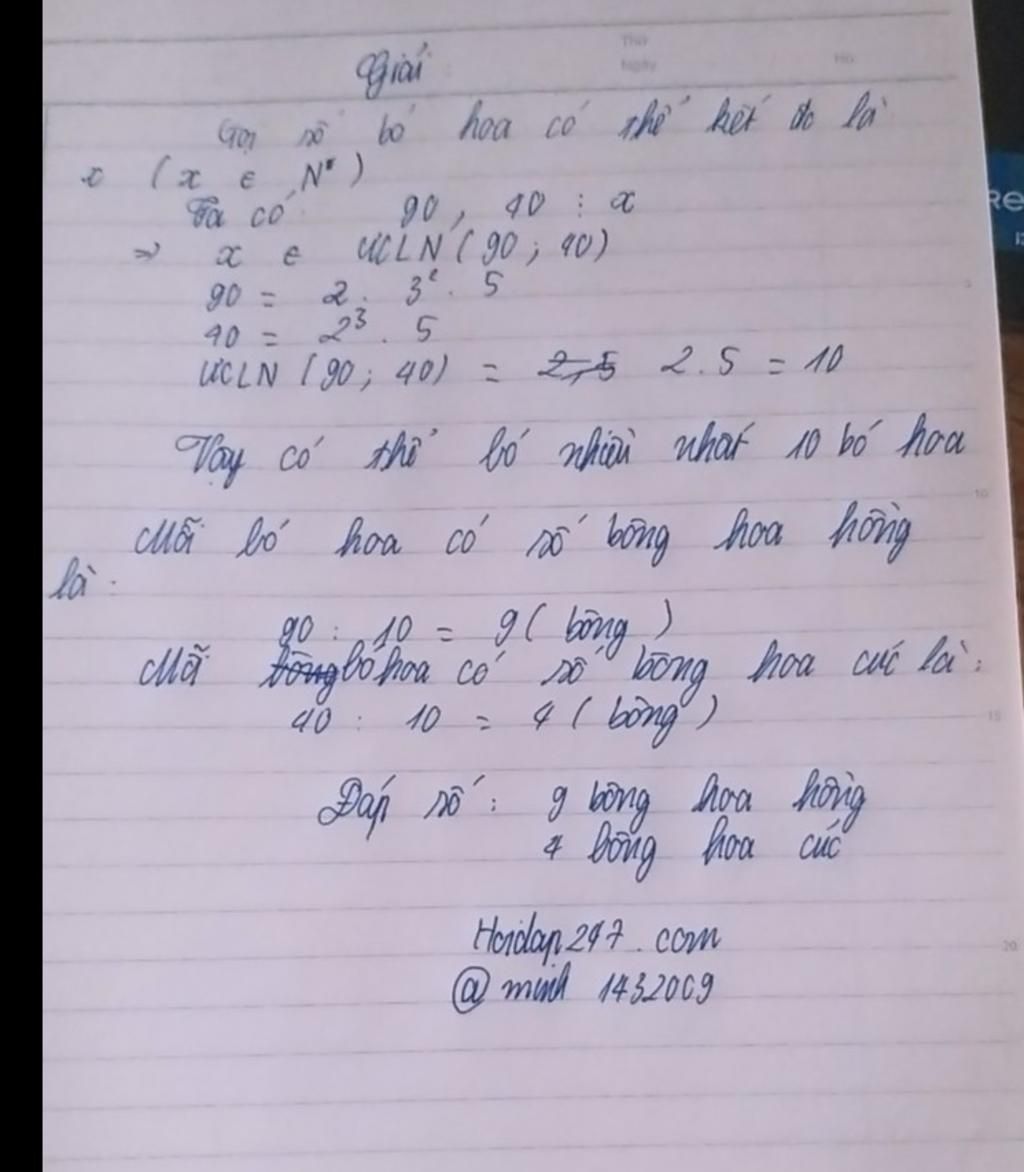 Thứ
Ngày
Giải
Gọi số bó hoa có thể kết đc là
x (x ∈ N*)
Ta có 90, 40 ⋮ x
=> x ∈ ƯCLN(90; 40)
90 = 2 . 3² . 5
40 = 2³ . 5
ƯCLN (90; 40) = 2.5 = 10
Vậy có thể bó nhiều nhất 10 bó hoa
Mỗi bó hoa có số bông hoa hồng
là:
90 : 10 = 9 (bông)
Mỗi bó hoa có số bông hoa cúc là:
40 : 10 = 4 (bông)
Đáp số: 9 bông hoa hồng
4 bông hoa cúc
Hoidap247.com
@minh 1432009
5
10
15
20